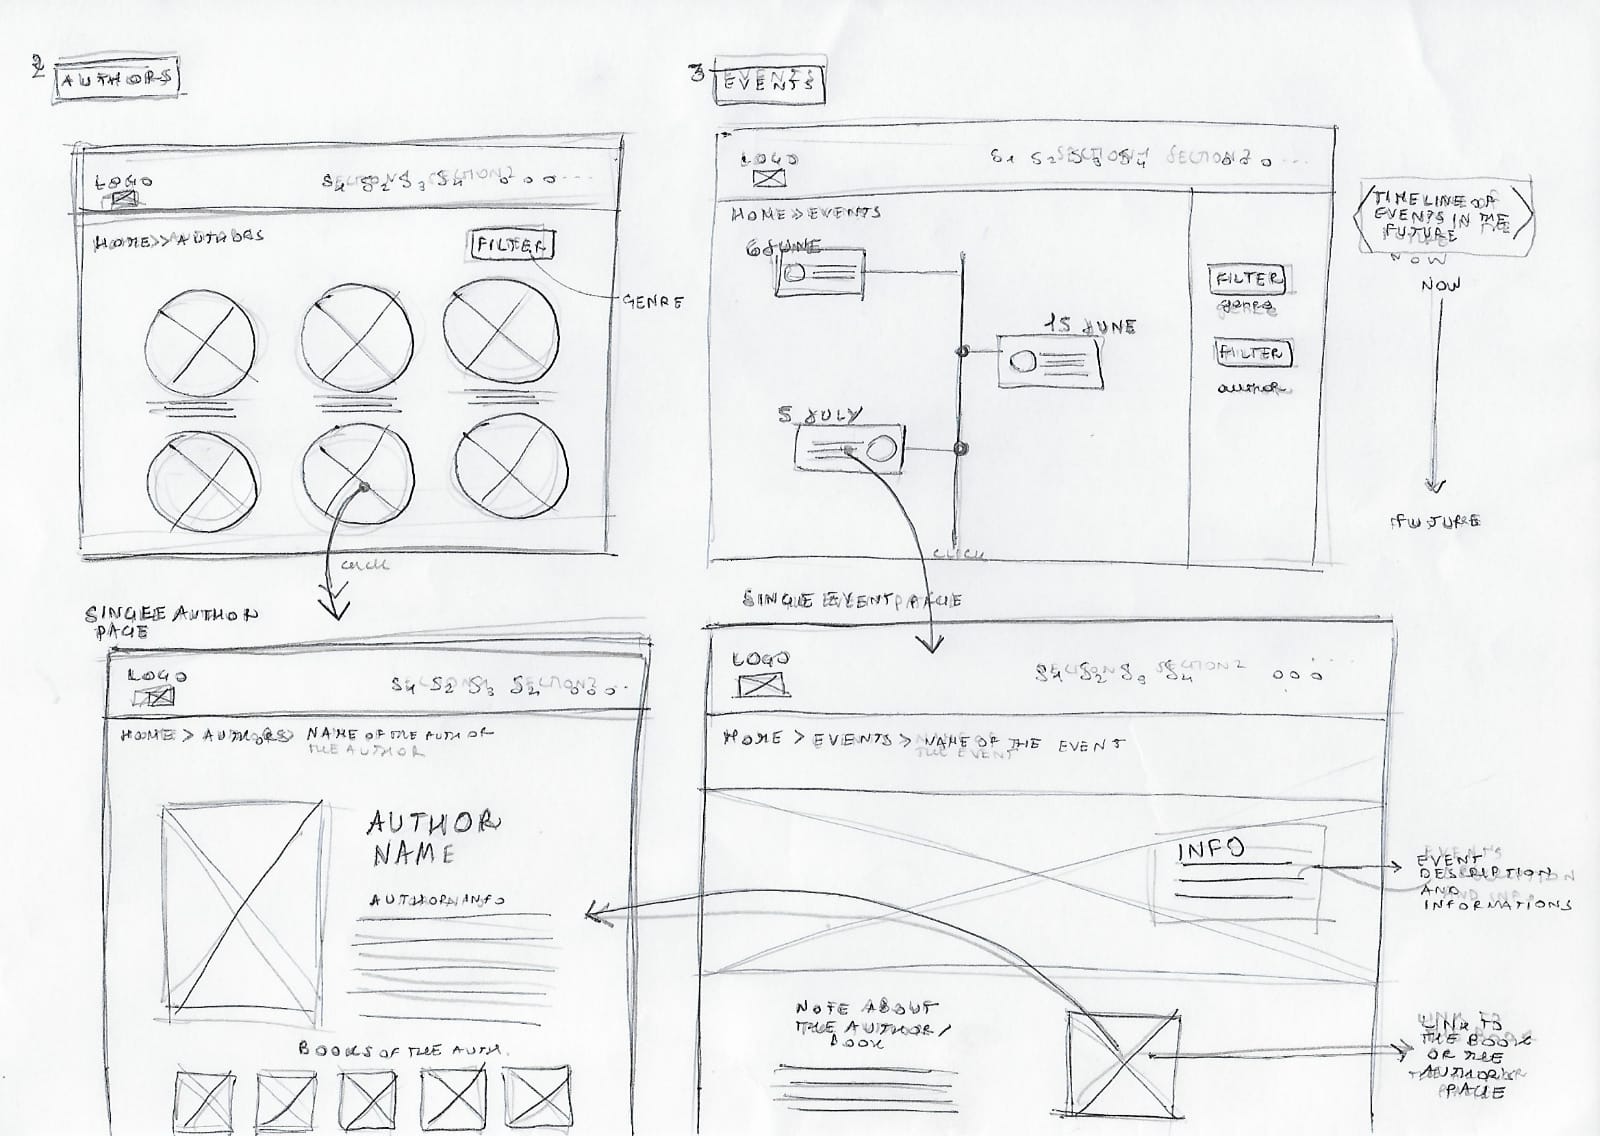 2
AUTHORS
LOGO
S1 S2 S3 S4
HOME >> AUTHORS
FILTER
GENRE
click
SINGLE AUTHOR
PAGE
LOGO
S1 S2 S3 S4
HOME > AUTHORS > NAME OF THE AUTHOR
AUTHOR
NAME
AUTHOR INFO
BOOKS OF THE AUTH.
3
EVENTS
LOGO
S1 S2 S3 S4
HOME >> EVENTS
6 JUNE
15 JUNE
5 JULY
FILTER
genre
FILTER
author
TIMELINE OF
EVENTS IN THE
FUTURE
NOW
FUTURE
CLICK
SINGLE EVENT PAGE
LOGO
S1 S2 S3 S4
HOME > EVENTS > NAME OF THE EVENT
INFO
EVENT
DESCRIPTION
AND
INFORMATIONS
NOTE ABOUT
THE AUTHOR/
BOOK
LINK TO
THE BOOK
OR THE
AUTHOR
PAGE